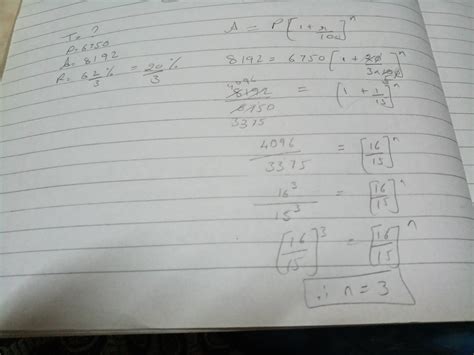 T = ?
P = 6750
A = 8192
R = 6 2/3 % = 20/3 %
A = P [1 + r/100]^n
8192 = 6750 [1 + 20/3×100]^n
4096
8192/6750 = (1 + 1/15)^n
3375
4096/3375 = [16/15]^n
16^3/15^3 = [16/15]^n
[16/15]^3 = [16/15]^n
∴ n = 3